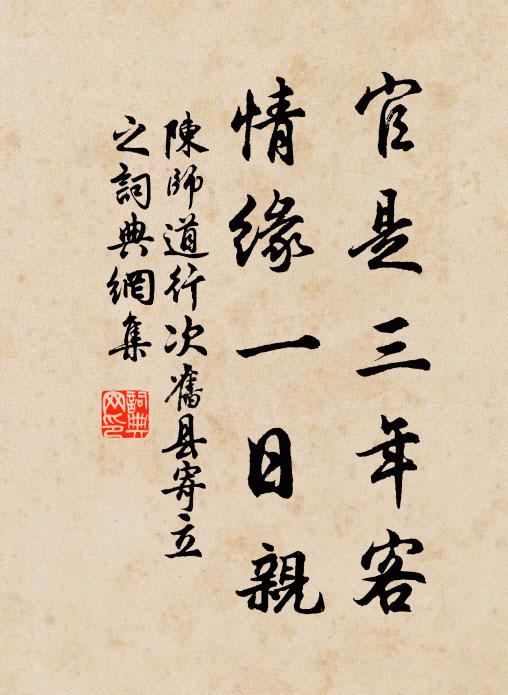 官是三年客
情緣一日親
陳師道行次舊县寄立
之詞典網集
詞典
网印